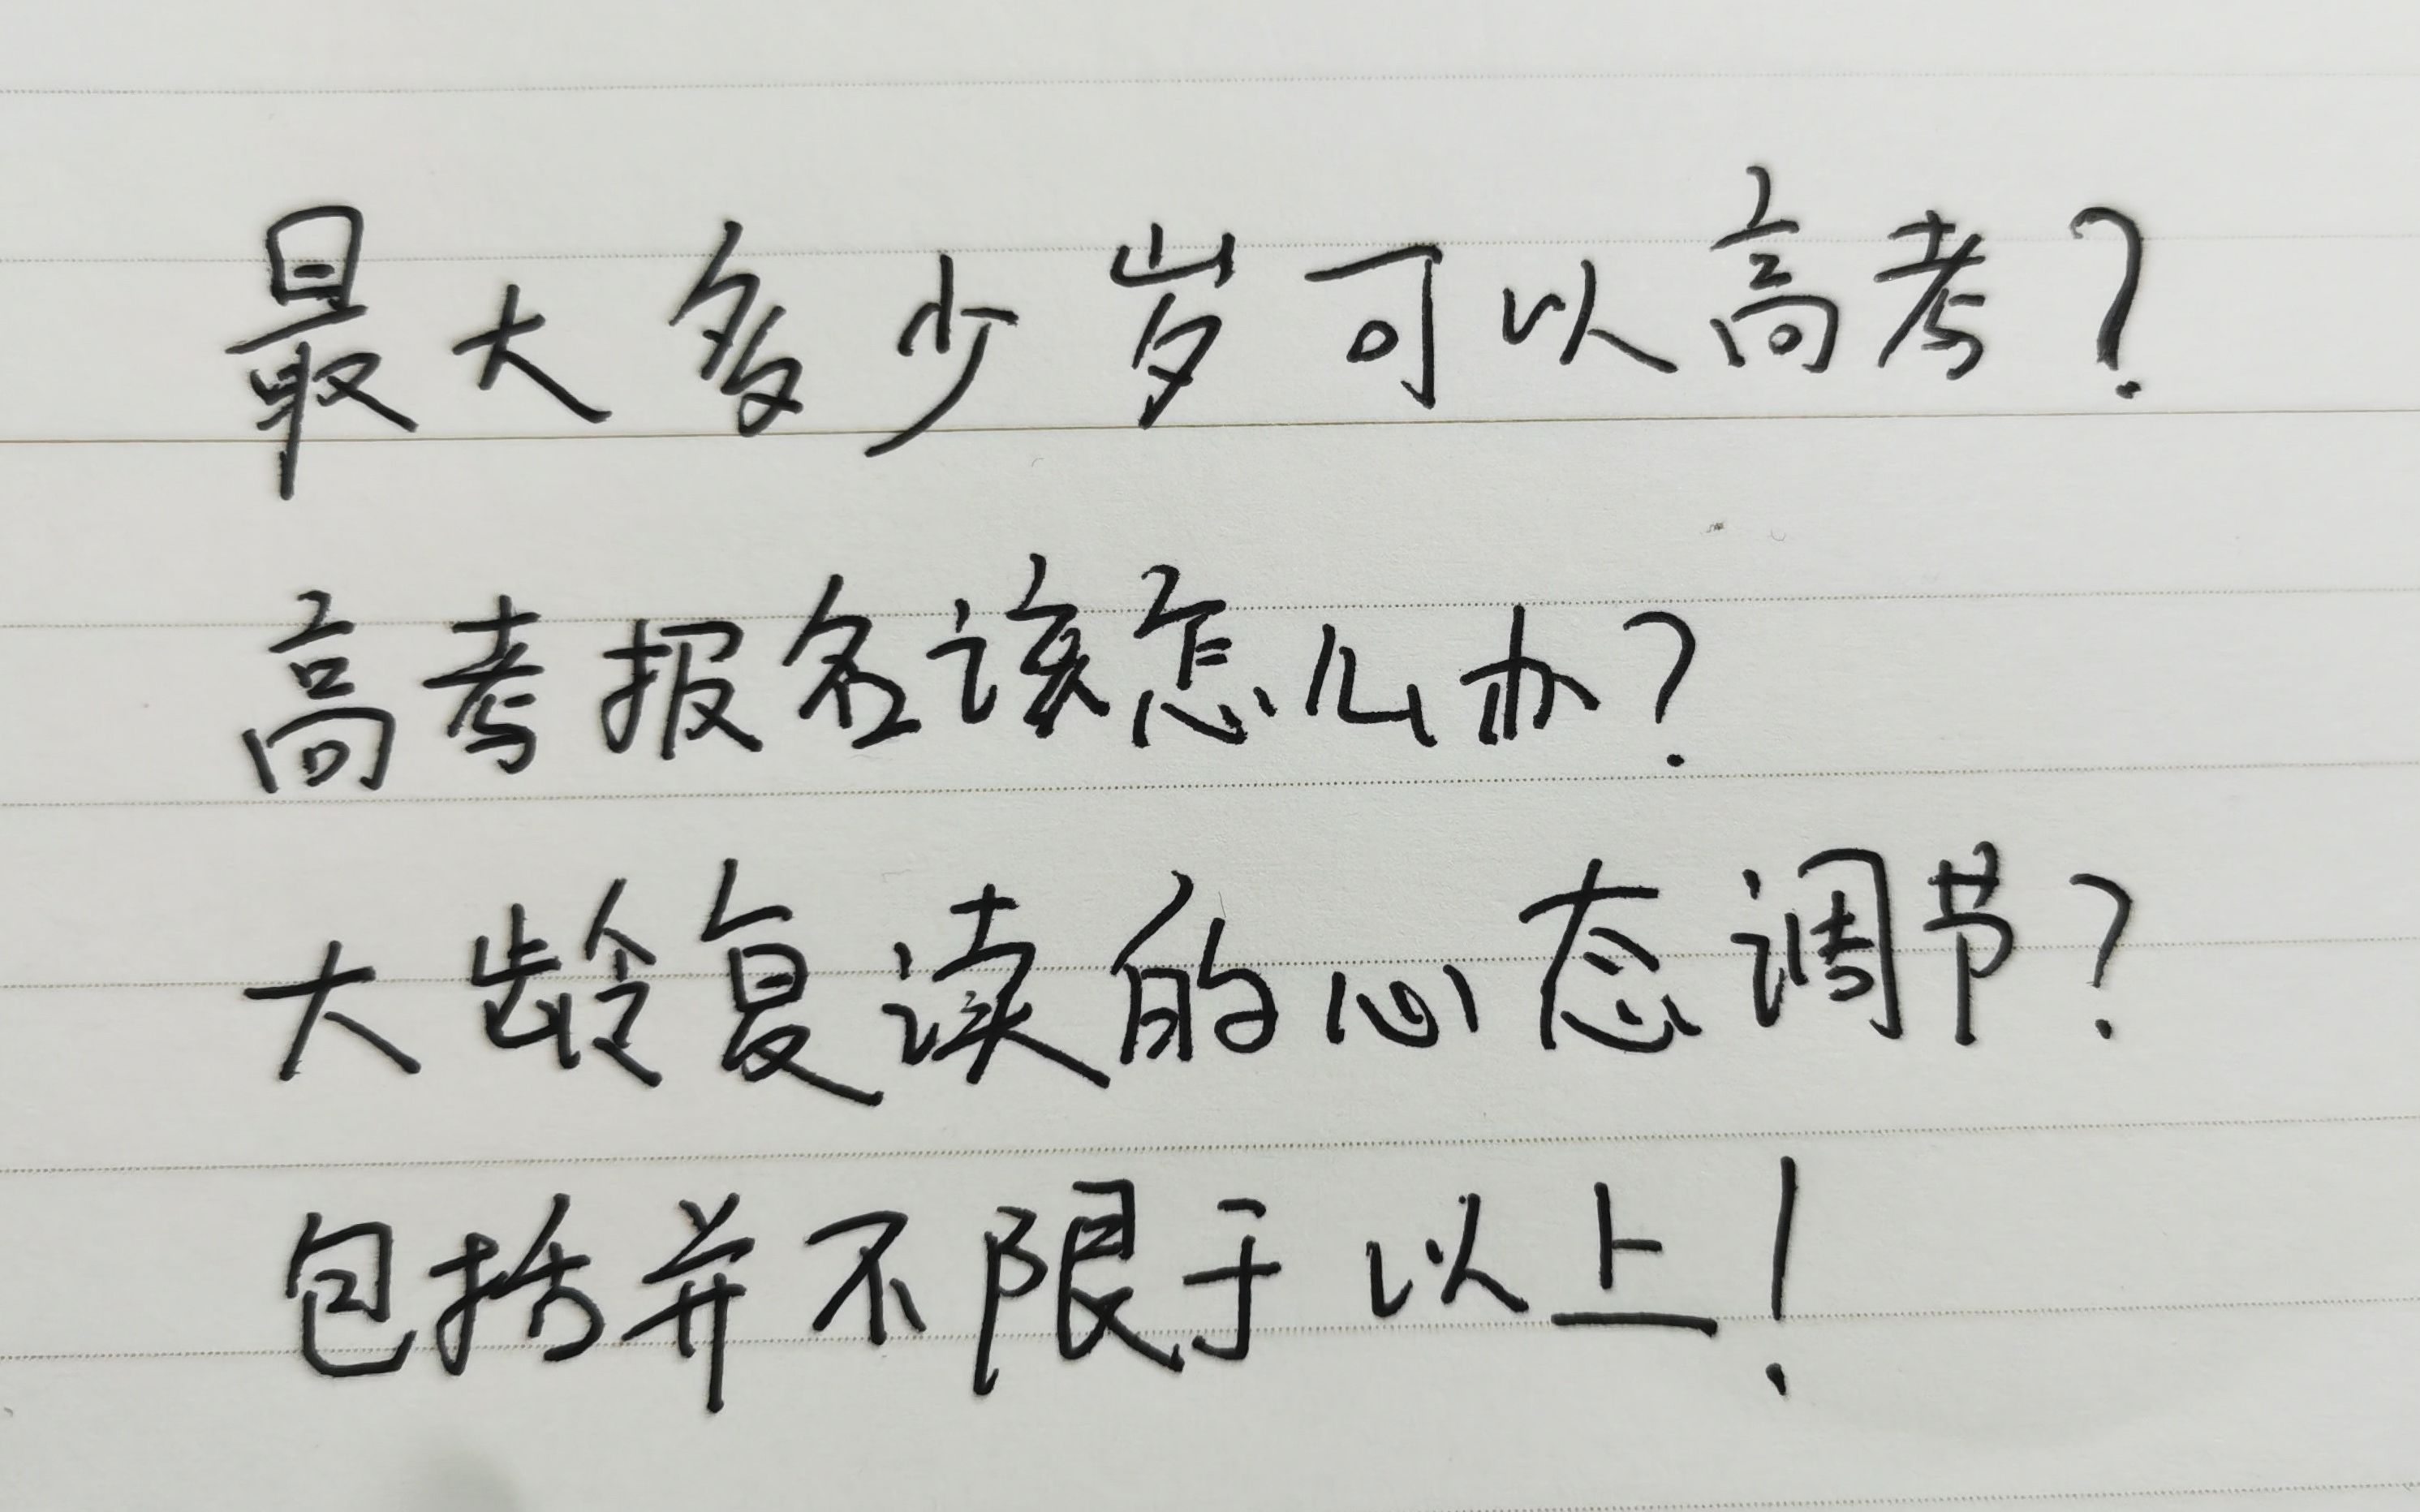 最大多少岁可以高考?
高考报名该怎么办?
大龄复读的心态调节?
包括并不限于以上!